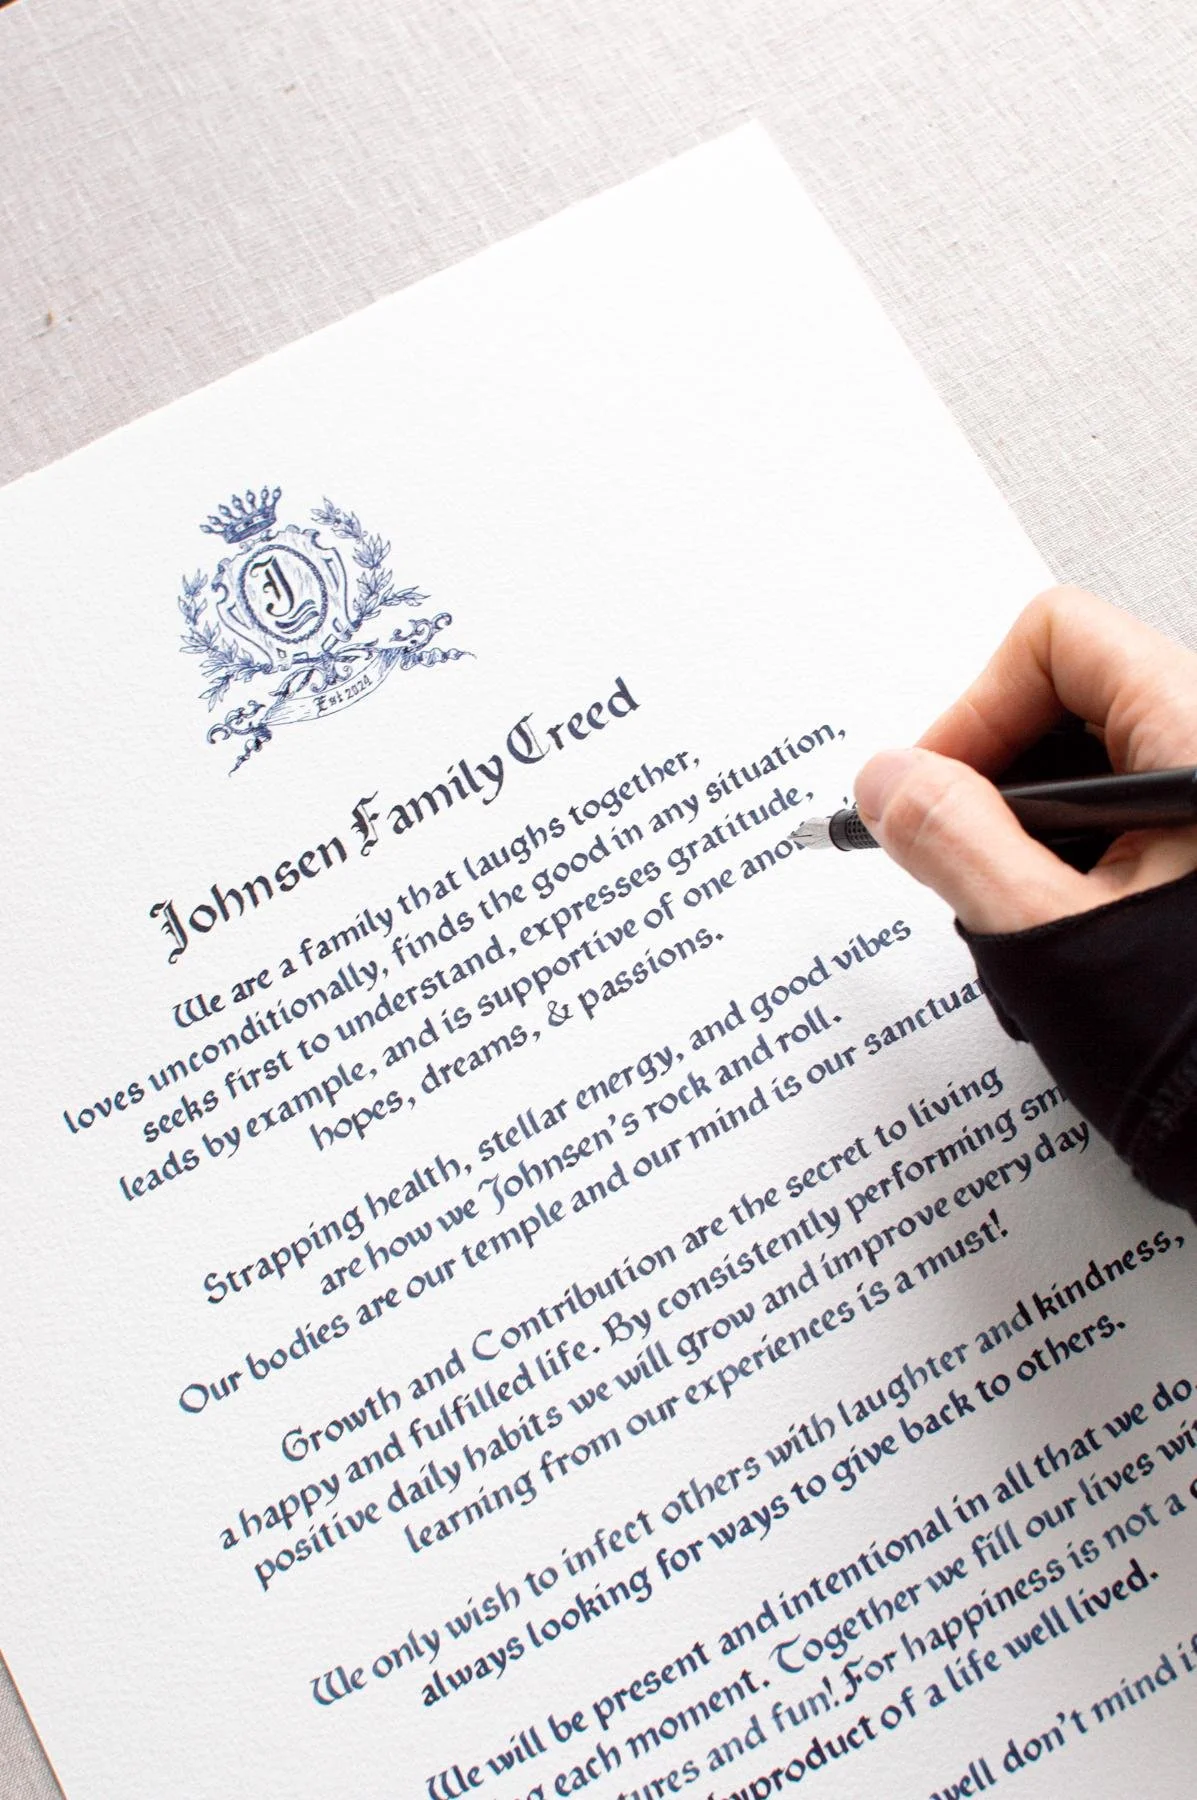 J
Est 2024
Johnsen Family Creed
We are a family that laughs together,
loves unconditionally, finds the good in any situation,
seeks first to understand, expresses gratitude,
leads by example, and is supportive of one
hopes, dreams, & passions.
Strapping health, stellar energy, and good vibes
are how we Johnsen's rock and roll.
Our bodies are our temple and our mind is our
Growth and Contribution are the secret to living
a happy and fulfilled life. By consistently performing
positive daily habits we will grow and improve every day
learning from our experiences is a must!
We only wish to infect others with laughter and kindness,
always looking for ways to give back to others.
We will be present and intentional in all that we do,
each moment. Together we fill our lives
and fun! For happiness is not a
of a life well lived.
well don't mind